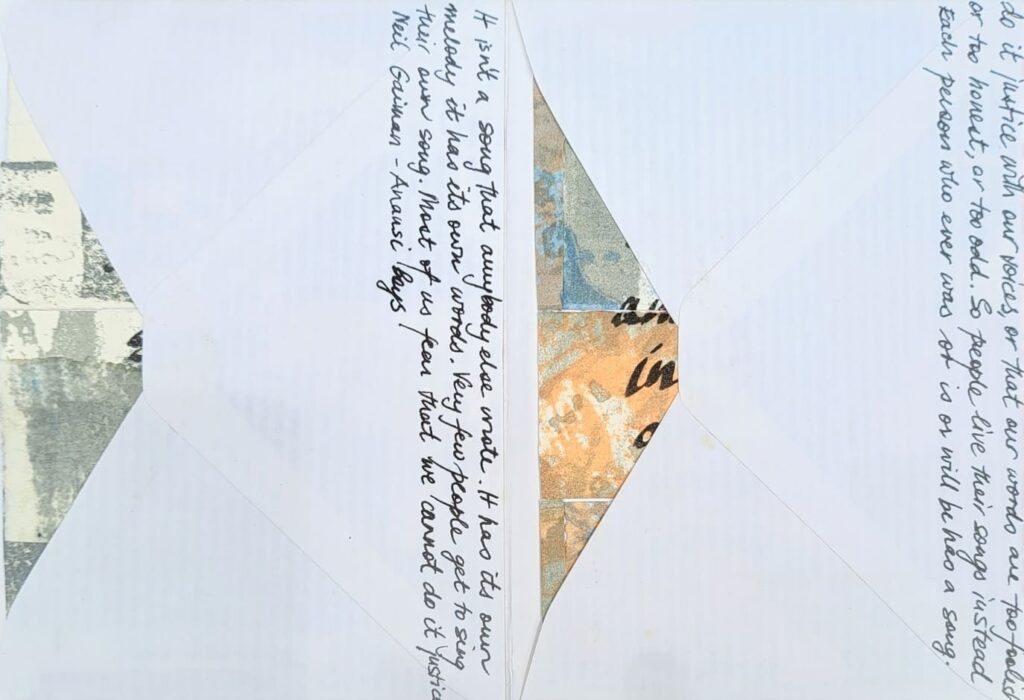 do it justice with our voices, or that our words are too foolis
or too honest, or too odd. So people live their songs instead
Each person who ever was or is or will be has a song.
in
It isn't a song that anybody else wrote. It has its own
melody it has its own words. Very few people get to sing
their own song. Most of us fear that we cannot do it justice
Neil Gaiman - Anansi Boys